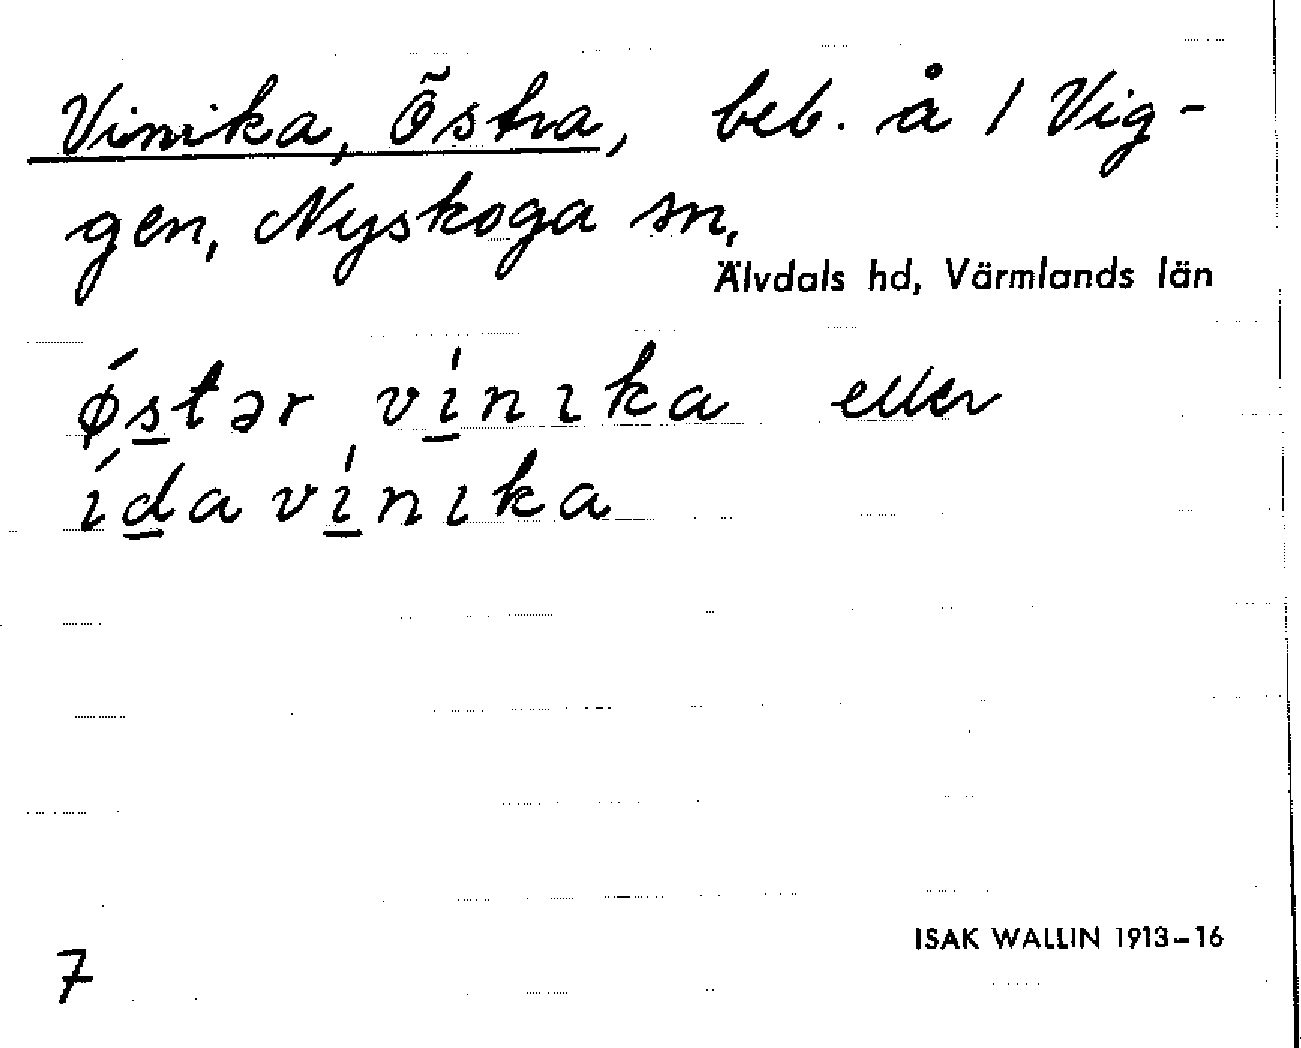 Vinika, Östra, beb. å 1 Vig-
gen, Nyskoga sn,
Älvdals hd, Värmlands län
ǿstər vínıka eller
ídavínıka
ISAK WALLIN 1913-16
7